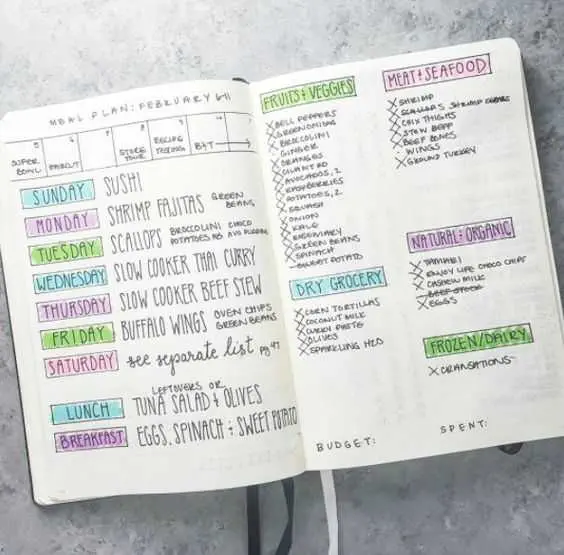 MEAL PLAN: FEBRUARY 6-11
5 6 7 8 9 10 11
SUPER BOWL
HAIRCUT
STORE TOUR
RECIPE TESTING
BTT
SUNDAY SUSHI
MONDAY SHRIMP FAJITAS GREEN BEANS
TUESDAY SCALLOPS BROCCOLINI CHOCO POTATOES AVO PUDDING
WEDNESDAY SLOW COOKER THAI CURRY
THURSDAY SLOW COOKER BEEF STEW
FRIDAY BUFFALO WINGS OVEN CHIPS GREEN BEANS
SATURDAY see separate list pg 47
LEFTOVERS OR
LUNCH TUNA SALAD & OLIVES
BREAKFAST EGGS, SPINACH & SWEET POTATO
FRUITS & VEGGIES
BELL PEPPERS
GREEN ONIONS
BROCCOLINI
GINGER
ORANGES
CILANTRO
AVOCADOS, 2
RASPBERRIES
POTATOES, 2
SQUASH
ONION
KALE
ROSEMARY
GREEN BEANS
SPINACH
SWEET POTATO
DRY GROCERY
CORN TORTILLAS
COCONUT MILK
CURRY PASTE
OLIVES
SPARKLING H2O
MEAT & SEAFOOD
SHRIMP
SCALLOPS
CHIX THIGHS
STEW BEEF
BEEF BONES
WINGS
GROUND TURKEY
NATURAL & ORGANIC
TAMARI
ENJOY LIFE CHOCO CHIPS
CASHEW MILK
BEEF STOCK
EGGS
FROZEN/DAIRY
BUDGET:
SPENT: